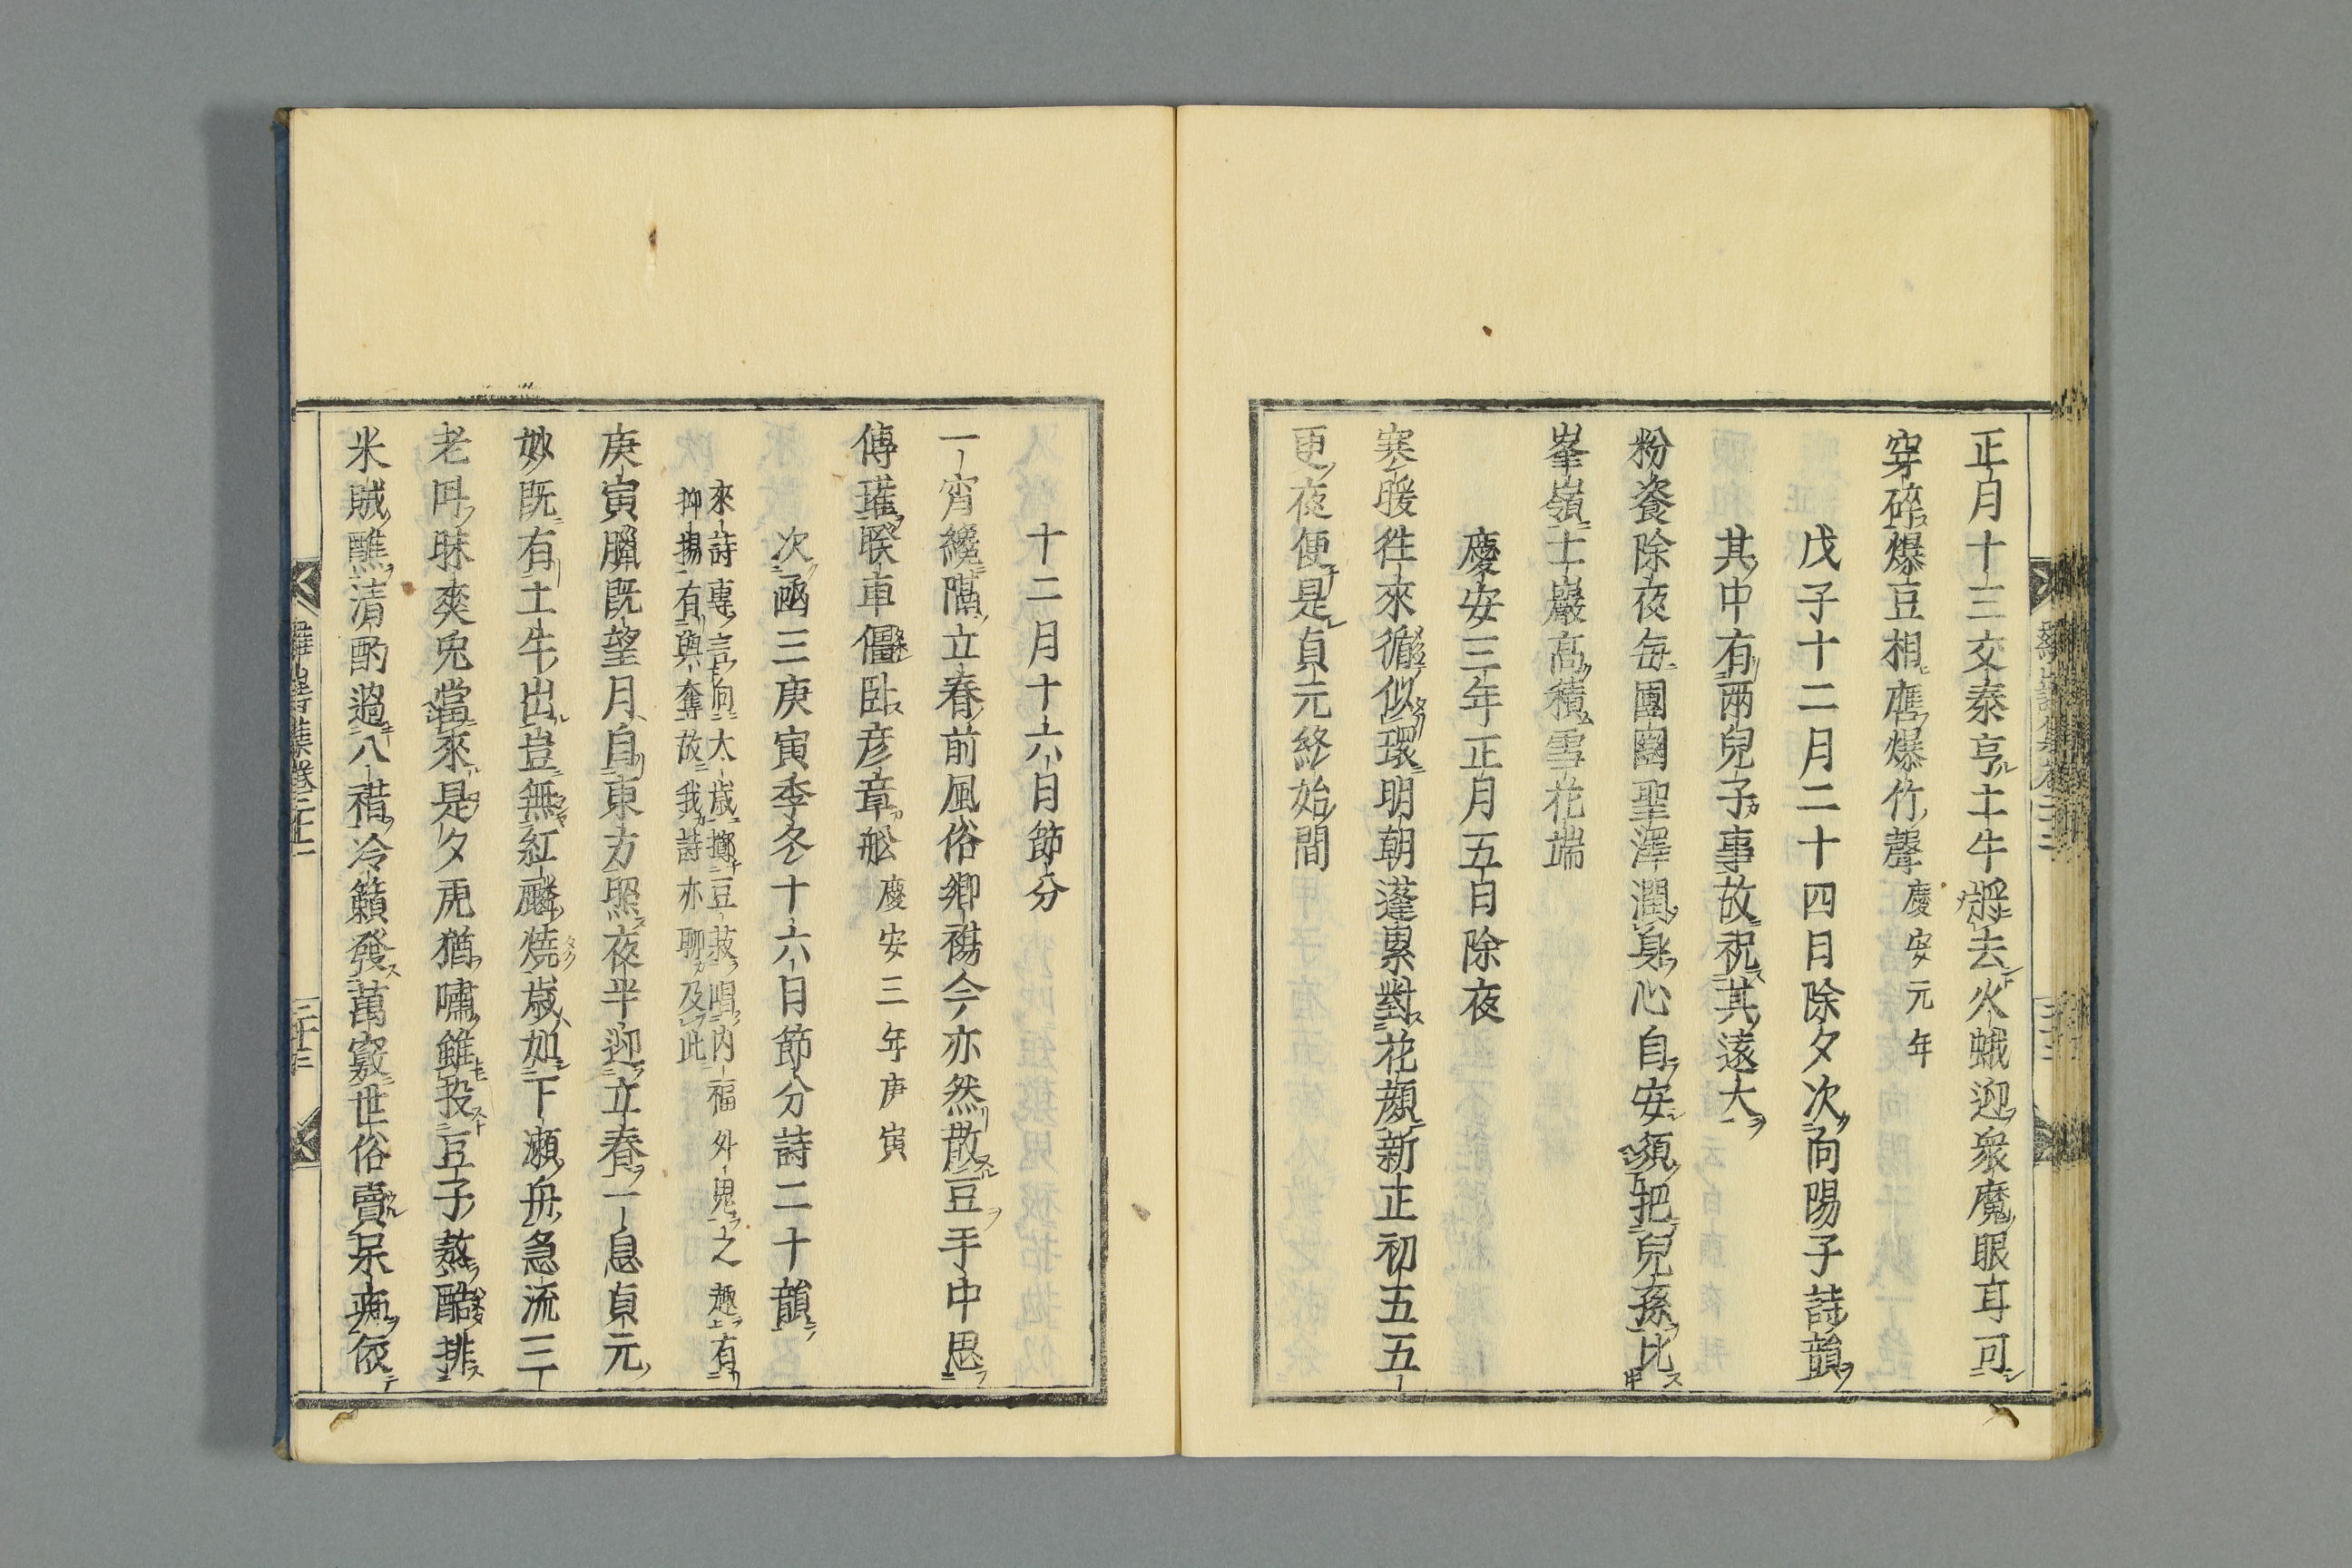 正月十三交泰亨土牛將去火蛾迎衆魔眼耳可
穿碎爆豆相應爆竹聲慶安元年
戊子十二月二十四日除夕次向陽子詩韻
其中有兩兒子事故祝其遠大
粉餈除夜每團圞聖澤潤身心自安須把兒孫比
峯嶺士巖高積雪花端
慶安三年正月五日除夜
寒暖徃來循似環明朝蓬累對花顏新正初五五
更夜便是貞元終始間
十二月十六日節分
一宵纔隔立春前風俗鄉禓今亦然散豆手中思
傅瓘睽車僵臥彦章舩慶安三年庚寅
次凾三庚寅季冬十六日節分詩二十韻
來詩專言向太歲擲豆菽唱內福外鬼之趣有
抑揚有與奪故我詩亦聊及此
庚寅臘既望月自東方照夜半迎立春一息貞元
妙既有土牛出豈無紅麟燒歲如下瀨舟急流三
老叫昧爽兔當來是夕虎猶嘯雖投豆子熬酷排
米賊醮清酌過八䄍冷籟發萬竅世俗賣呆癡依